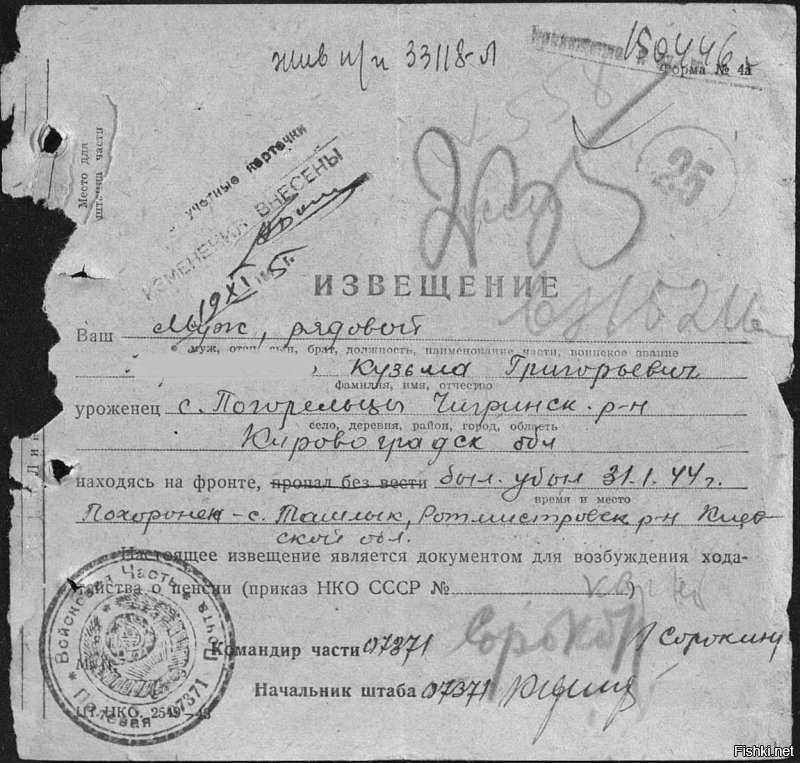 жив п/п 33118-Л
150446
Форма № 4а
Место для
части
учетные карточки
ИЗМЕНЕНИЯ ВНЕСЕНЫ
19 XI 45 г.
558
25
ИЗВЕЩЕНИЕ
Ваш муж, рядовой
муж, отец, сын, брат, должность, наименование части, воинское звание
, Кузьма Григорьевич
фамилия, имя, отчество
уроженец с. Погорельцы Чигринск. р-н
село, деревня, район, город, область
Кировоградск обл
находясь на фронте, пропал без вести был. убыл 31.1.44 г.
время и место
Похоронен - с. Ташлык, Ротмистровск. р-н Киев
ской обл.
Настоящее извещение является документом для возбуждения хода-
тайства о пенсии (приказ НКО СССР №
Командир части 07371 Сорокин
Начальник штаба 07371
Войсковая Часть * Полевая Почта 07371
НКО. 2549—43
Fishki.net